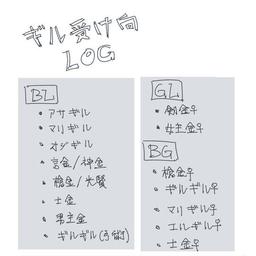 ギル受け向
LOG
BL
・アサギル
・マリギル
・オジギル
・言金/神金
・槍金/光賢
・士金
・男主金
・ギルギル(弓術)
GL
・剣金♀
・女主金♀
BG
・槍金♀
・ギルギル♀
・マリギル♀
・エルギル♀
・士金♀